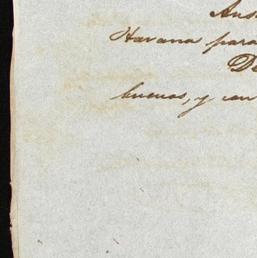 Havana para
De
buenos, y con